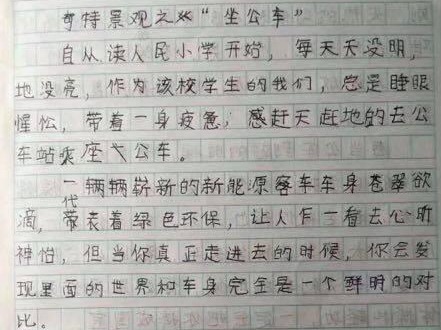 奇特景观之《“坐公车》
自从读人民小学开始，每天天没明，
地没亮，作为该校学生的我们，总是睡眼
惺忪，带着一身疲惫，感赶天赶地的去公
车站乘座公车。
一辆辆崭新的新能源客车车身苍翠欲
滴，代表着绿色环保，让人乍一看去心旷
神怡，但当你真正走进去的时候，你会发
现里面的世界和车身完全是一个鲜明的对
比。